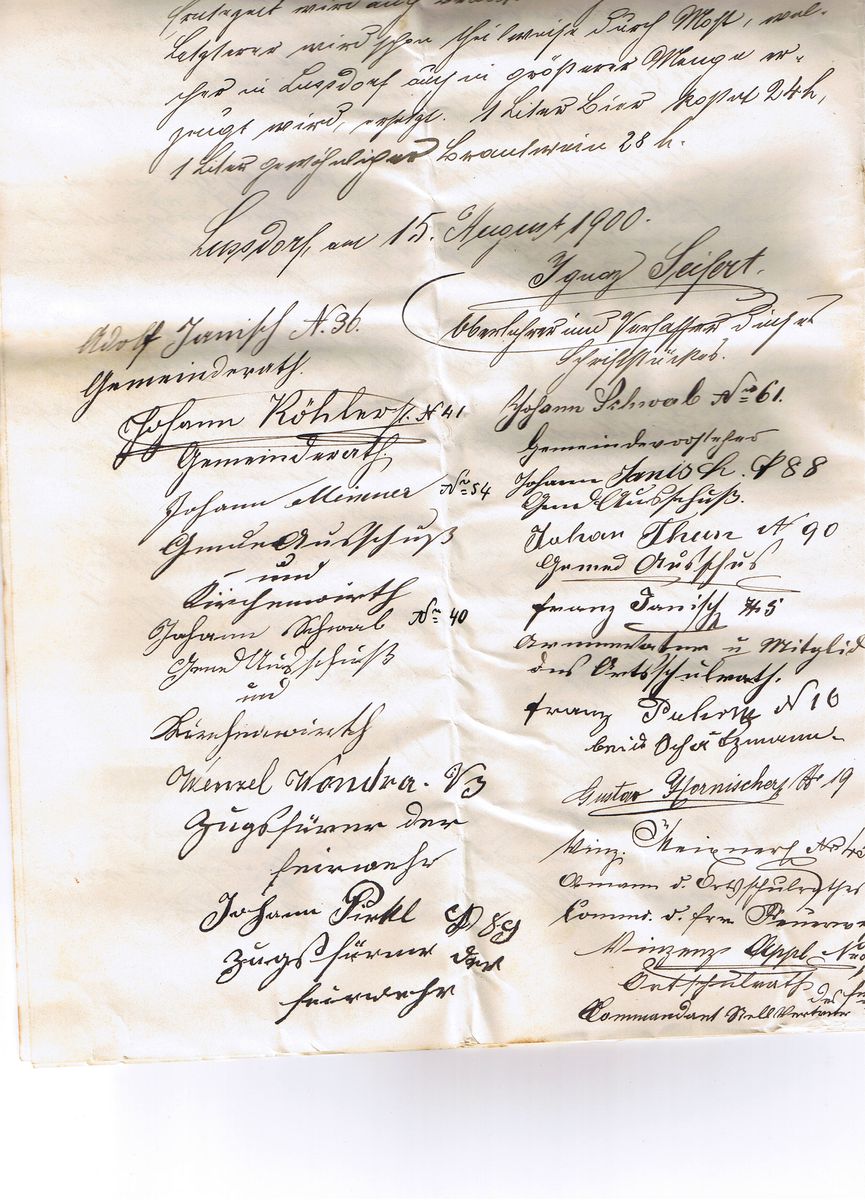 Erntezeit wird auch
Letzterer wird schon theilweise durch Most, wel-
cher in Lussdorf auch in größerer Menge er-
zeugt wird, ersetzt. 1 Liter Bier kostet 24 h,
1 Liter gewöhnlicher Brantwein 28 h.
Lussdorf, am 15. August 1900.
Ignaz Seifert.
Oberlehrer und Verfasser dieses
Schriftstückes.
Adolf Janisch N. 36.
Gemeinderath.
Johann Köhler N 41
Gemeinderath
Johann No 54
Gmde Ausschuß
und
Kirchenwirth
Johann Schwab No 40
Gmd Ausschuß
und
Kirchenwirth
Wenzel Wondra. N 3
Zugsfürer der
feirwehr
Johann Pirkl № 89
Zugsfürer der
feirwehr
Johann Schwab No 61.
Gemeindevorsteher
Johann Janisch. № 88
Gmd Ausschuß.
Johan Thun N 90
Gemed Ausschus
franz Janisch № 5
Armenvater u Mitglid
des Ortsschulrath.
franz N 16
beide Schätzmann
Gustav № 19
Winz. No
Obmann d. Ortsschulrathes
Comm. d. frw Feuerwe
Vinzenz Appl No
Ortschulrath
des
Commandant Stellvertreter